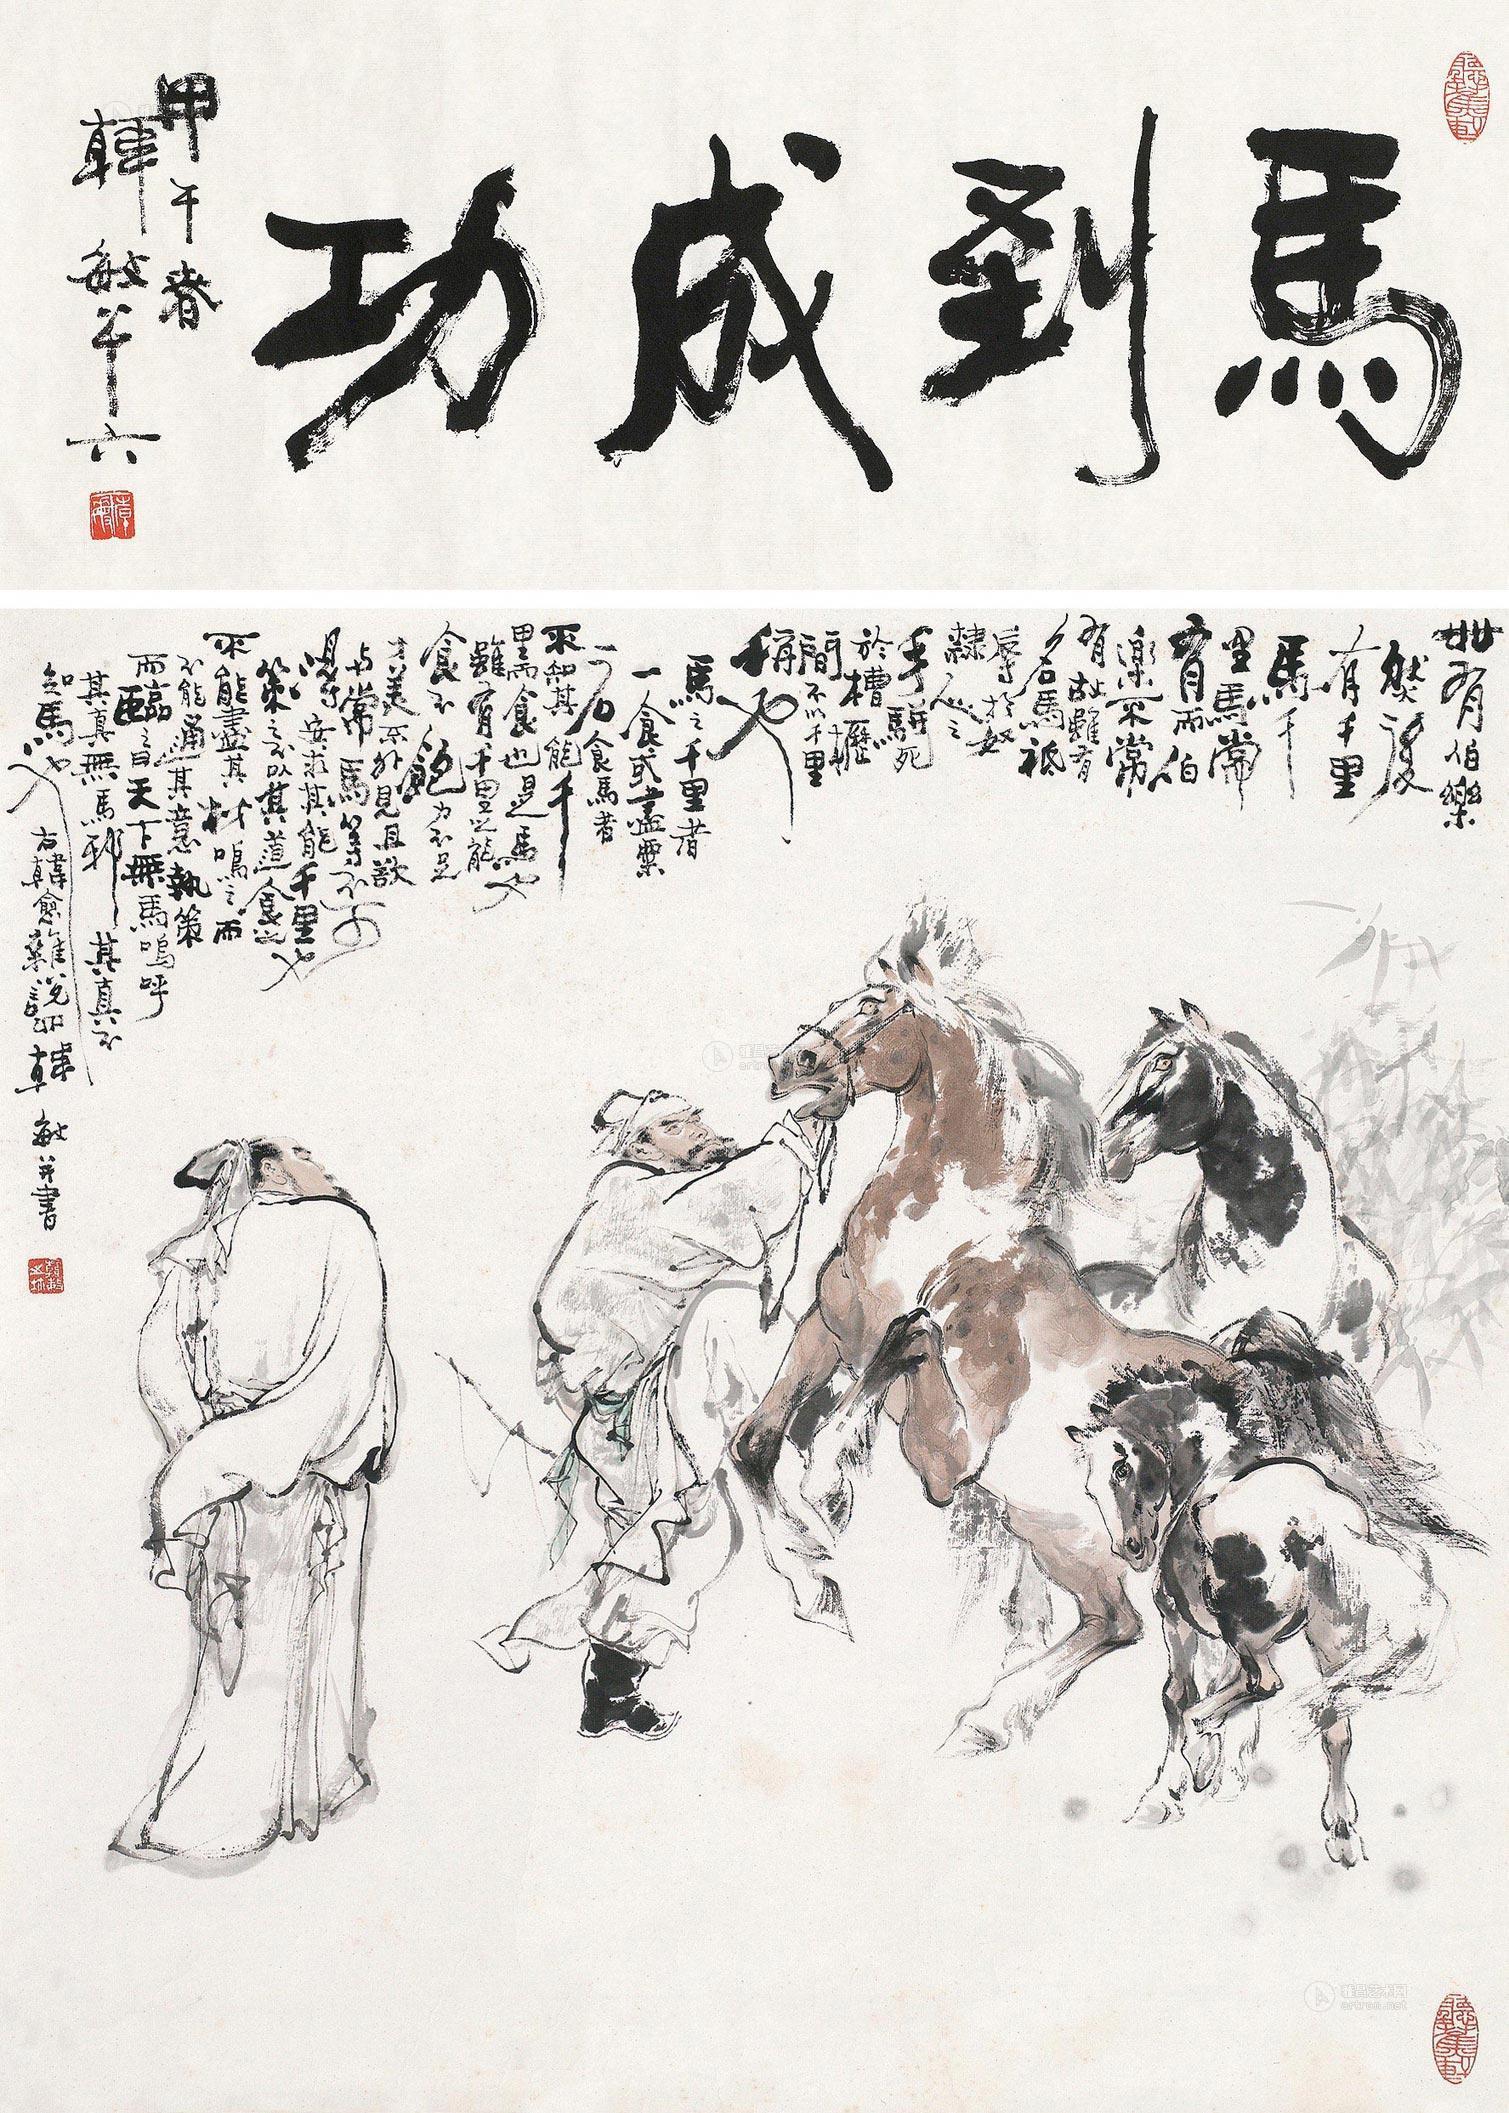 馬到成功
甲午春
韓敏羊六
世有伯樂
然後
有千里
馬千
里馬常
有而伯
樂不常
有故雖有
名馬祗
辱於奴
隸人之
手駢死
於槽櫪
間不以千里
稱也
馬之千里者
一食或盡粟
一石食馬者
不知其能千
里而食也是馬也
雖有千里之能
食不飽力不足
才美不外見且欲
与常馬等不可
得安求其能千里也
策之不以其道食之
不能盡其材鳴之而
不能通其意執策
而臨之曰天下無馬嗚呼
其真無馬邪其真不
知馬也
右韓愈雜說四韓敏并書
雅昌艺术网
artron.net